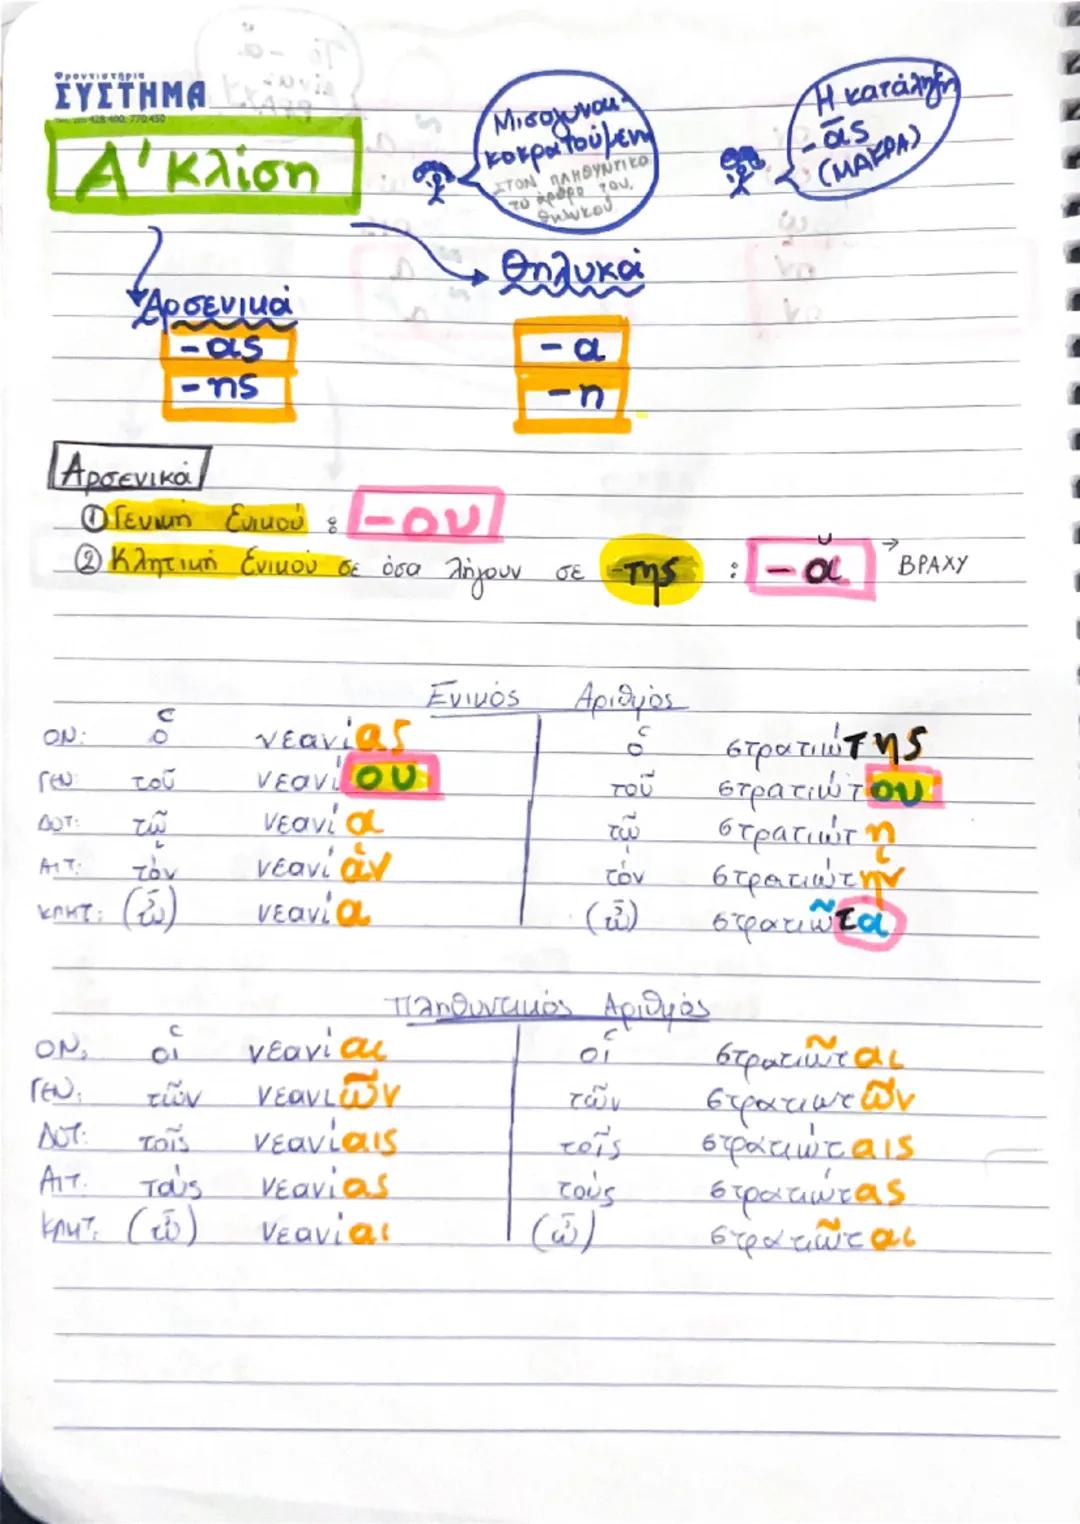 Φροντιστήρια
ΣΥΣΤΗΜΑ
428 400, 770 450
Α' Κλίση
Μισογυνακοκρατούμενη
ΣΤΟΝ ΠΛΗΘΥΝΤΙΚΟ
το άρθρο του
θηλυκού
Η κατάληξη
-ᾱς
(ΜΑΚΡΑ)
Αρσενικά
-ας
-ης
Θηλυκά
-α
-η
Αρσενικά
① Γενική Ενικού : -ου
② Κλητική Ενικού σε όσα λήγουν σε -της : -ᾰ → ΒΡΑΧΥ
Ενικός Αριθμός
ΟΝ: ὁ νεανίας ὁ στρατιώτης
ΓΕΝ: τοῦ νεανίου τοῦ στρατιώτου
ΔΟΤ: τῷ νεανίᾳ τῷ στρατιώτῃ
ΑΙΤ: τὸν νεανίαν τόν στρατιώτην
ΚΛΗΤ: (ὦ) νεανία (ὦ) στρατιῶτα
Πληθυντικός Αριθμός
ΟΝ. οἱ νεανίαι οἱ στρατιῶται
ΓΕΝ. τῶν νεανιῶν τῶν στρατιωτῶν
ΔΟΤ: τοῖς νεανίαις τοῖς στρατιώταις
ΑΙΤ. τούς νεανίας τούς στρατιώτας
ΚΛΗΤ. (ὦ) νεανίαι (ὦ) στρατιῶται